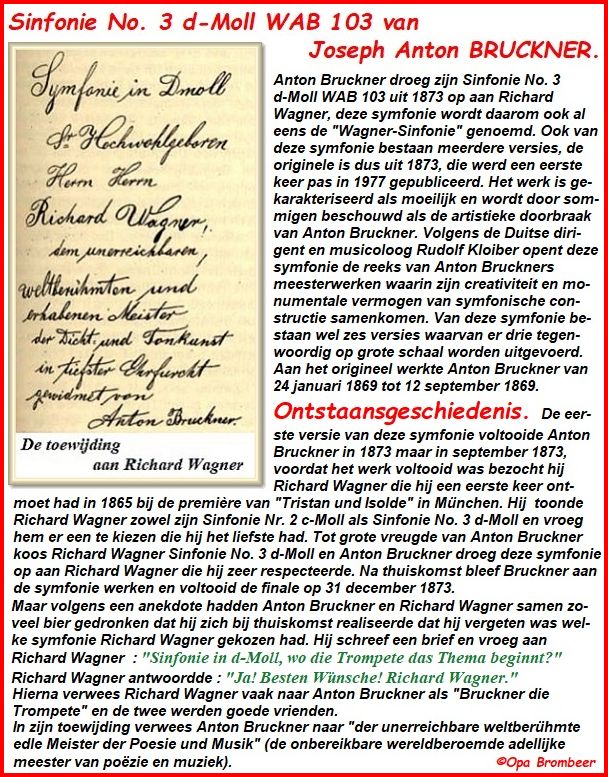 Sinfonie No. 3 d-Moll WAB 103 van
Joseph Anton BRUCKNER.
Symfonie in Dmoll
Sr Hochwohlgeboren
Herrn Herrn
Richard Wagner,
dem unerreichbaren,
weltberühmten und
erhabenen Meister
der Dicht- und Tonkunst
in tiefster Ehrfurcht
gewidmet von
Anton Bruckner.
De toewijding
aan Richard Wagner
Anton Bruckner droeg zijn Sinfonie No. 3
d-Moll WAB 103 uit 1873 op aan Richard
Wagner, deze symfonie wordt daarom ook al
eens de "Wagner-Sinfonie" genoemd. Ook van
deze symfonie bestaan meerdere versies, de
originele is dus uit 1873, die werd een eerste
keer pas in 1977 gepubliceerd. Het werk is ge-
karakteriseerd als moeilijk en wordt door som-
migen beschouwd als de artistieke doorbraak
van Anton Bruckner. Volgens de Duitse diri-
gent en musicoloog Rudolf Kloiber opent deze
symfonie de reeks van Anton Bruckners
meesterwerken waarin zijn creativiteit en mo-
numentale vermogen van symfonische con-
structie samenkomen. Van deze symfonie be-
staan wel zes versies waarvan er drie tegen-
woordig op grote schaal worden uitgevoerd.
Aan het origineel werkte Anton Bruckner van
24 januari 1869 tot 12 september 1869.
Ontstaansgeschiedenis. De eer-
ste versie van deze symfonie voltooide Anton
Bruckner in 1873 maar in september 1873,
voordat het werk voltooid was bezocht hij
Richard Wagner die hij een eerste keer ont-
moet had in 1865 bij de première van "Tristan und Isolde" in München. Hij toonde
Richard Wagner zowel zijn Sinfonie Nr. 2 c-Moll als Sinfonie No. 3 d-Moll en vroeg
hem er een te kiezen die hij het liefste had. Tot grote vreugde van Anton Bruckner
koos Richard Wagner Sinfonie No. 3 d-Moll en Anton Bruckner droeg deze symfonie
op aan Richard Wagner die hij zeer respecteerde. Na thuiskomst bleef Bruckner aan
de symfonie werken en voltooid de finale op 31 december 1873.
Maar volgens een anekdote hadden Anton Bruckner en Richard Wagner samen zo-
veel bier gedronken dat hij zich bij thuiskomst realiseerde dat hij vergeten was wel-
ke symfonie Richard Wagner gekozen had. Hij schreef een brief en vroeg aan
Richard Wagner : "Sinfonie in d-Moll, wo die Trompete das Thema beginnt?"
Richard Wagner antwoordde : "Ja! Besten Wünsche! Richard Wagner."
Hierna verwees Richard Wagner vaak naar Anton Bruckner als "Bruckner die
Trompete" en de twee werden goede vrienden.
In zijn toewijding verwees Anton Bruckner naar "der unerreichbare weltberühmte
edle Meister der Poesie und Musik" (de onbereikbare wereldberoemde adellijke
meester van poëzie en muziek).
©Opa Brombeer